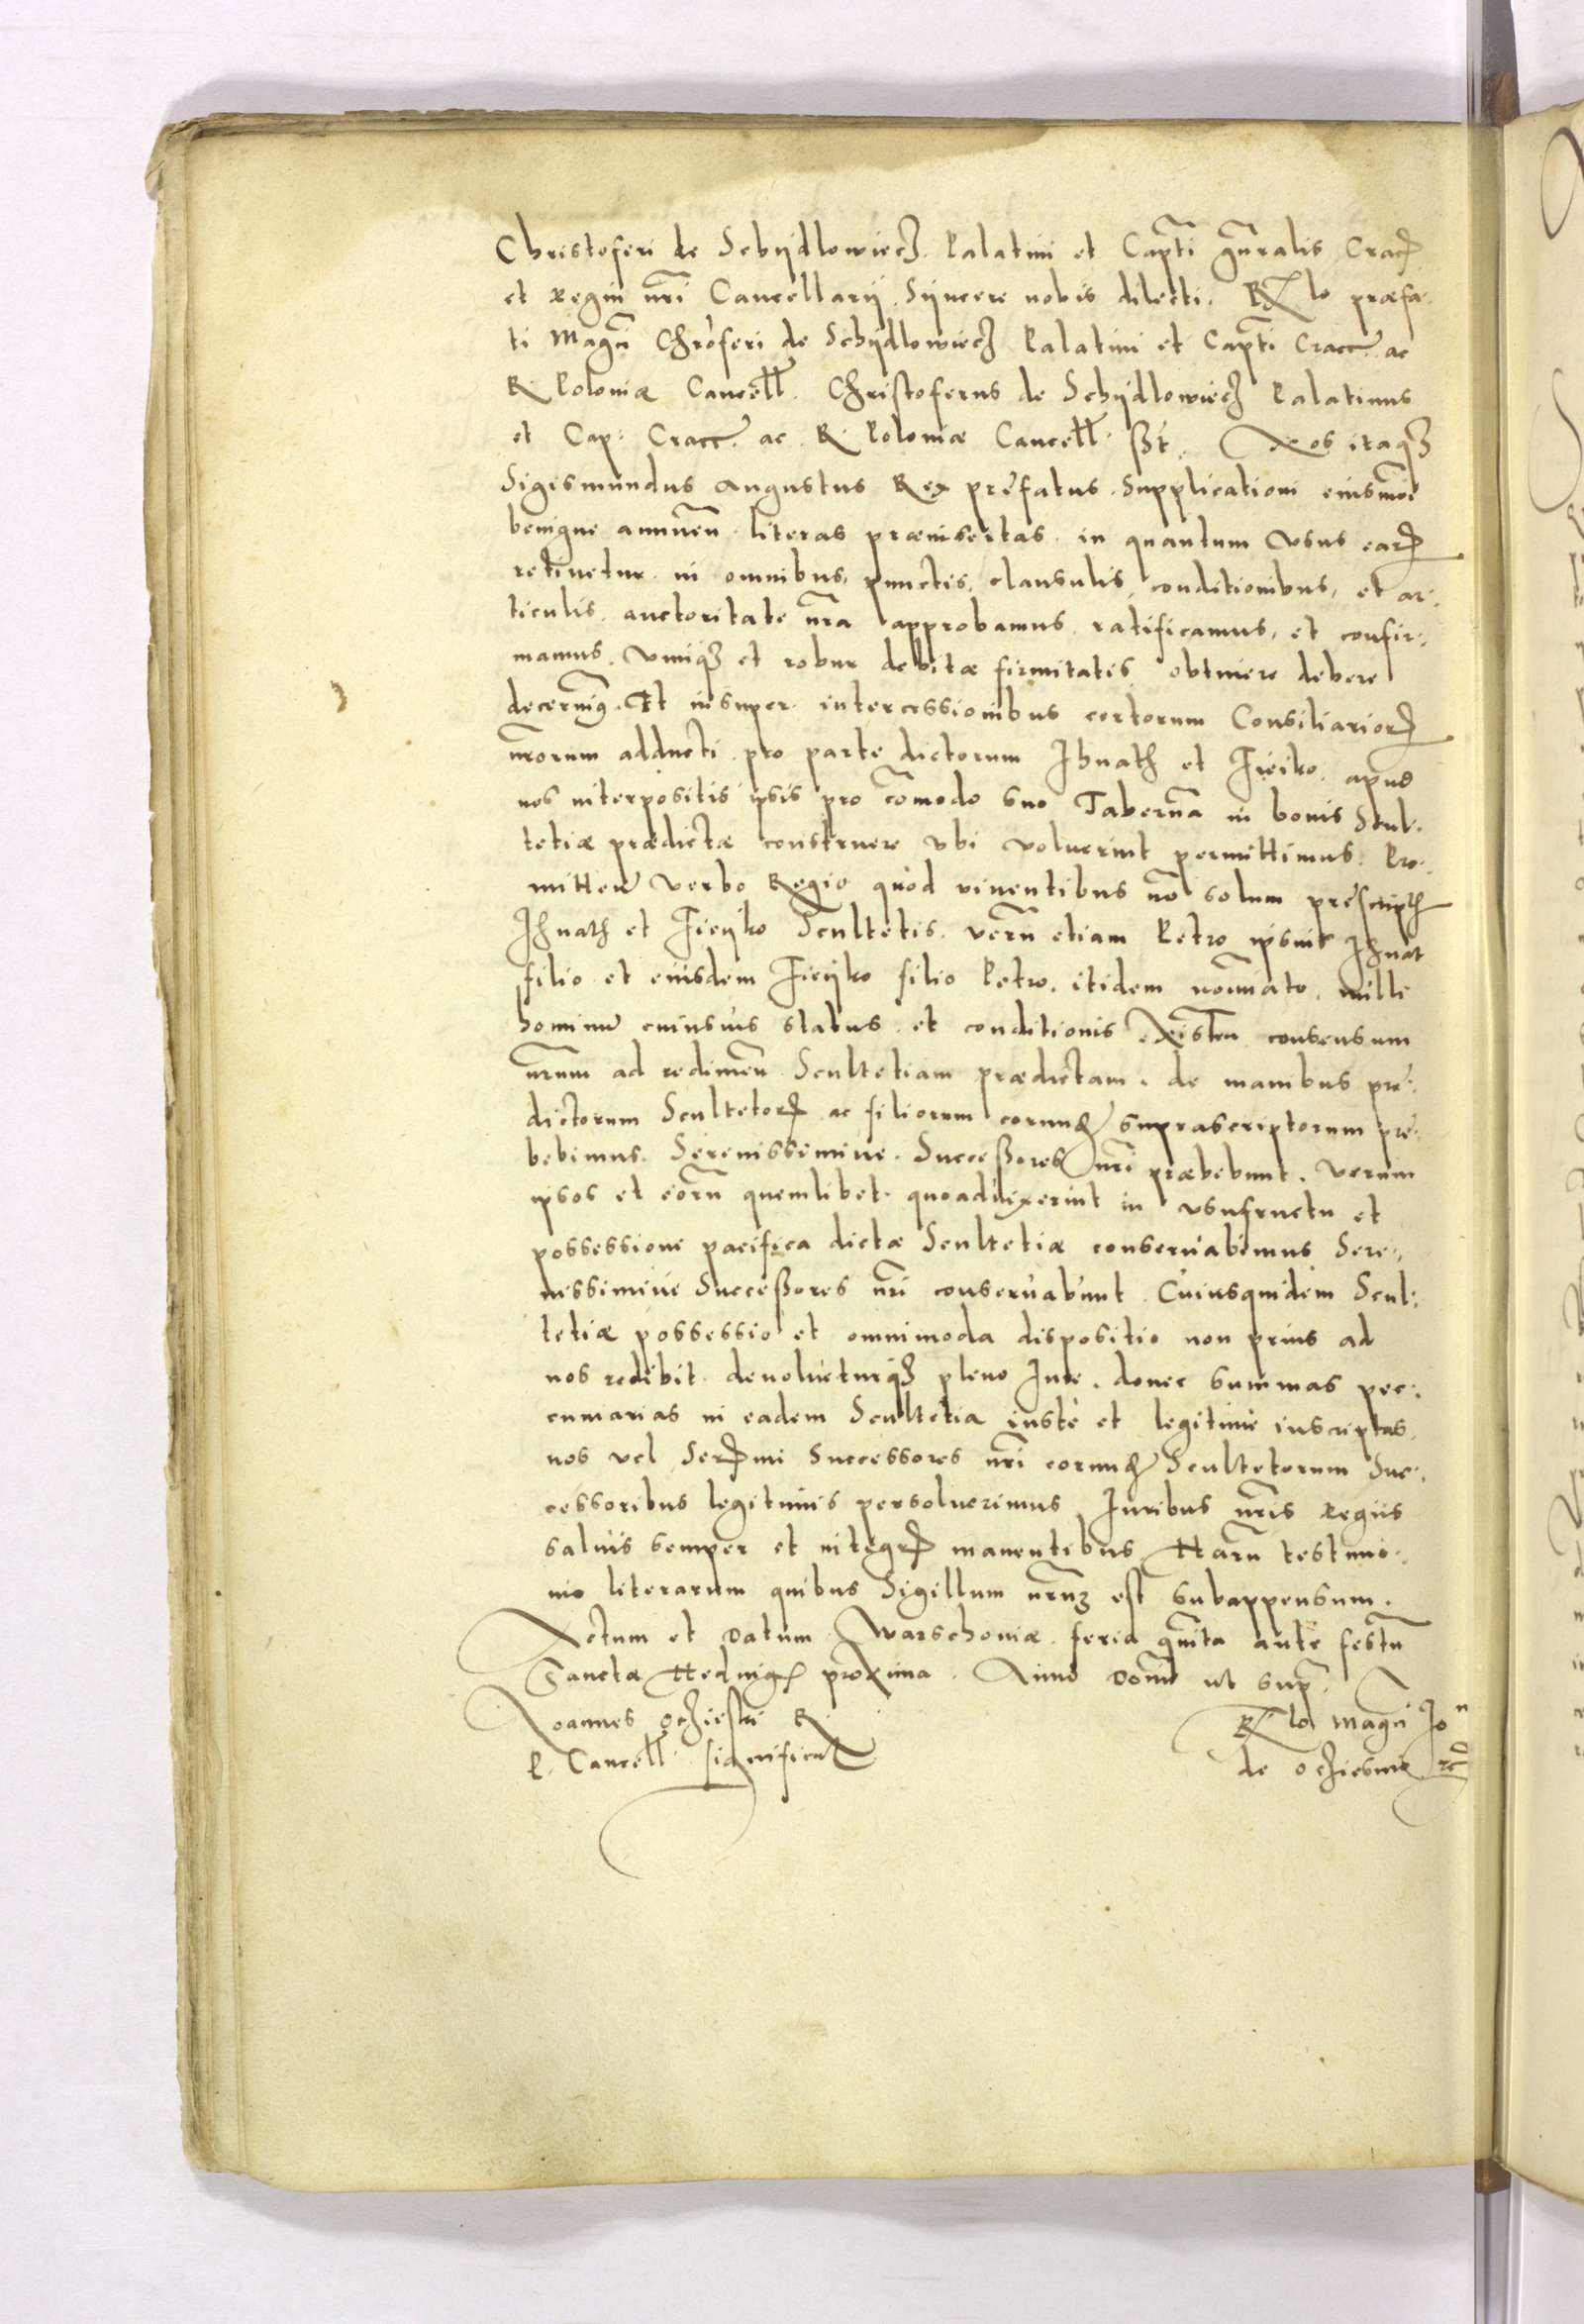 Christoferi de Schydlowiecz. Palatini et Capt̃i gñralis Crac̃
et regni nr̃i Cancellarij Syncere nobis dilecti. Rlo præfa-
ti Magci Chrõferi de Schydlowiecz Palatini et Capt̃i Cracc̃. ac
R. Poloniæ Cancell̃. Christoferus de Schydlowiecz Palatinus
et Cap. Cracc̃. ac R. Poloniæ Cancell̃. sst. Nos itaq3
Sigismundus Augustus Rex prefatus. Supplicationi eiusmõi
benigne annuen̄ literas præinsertas. in quantum vsus earꝝ
retinetur. in omnibus, punctis, clausulis, conditionibus, et ar-
ticulis. auctoritate nr̃a approbamus. ratificamus, et confir-
mamus. vimq3 et robur debitæ firmitatis obtinere debere
decernimꝰ. Et insuper. intercessionibus certorum Consiliariorꝝ
nr̃orum adducti. pro parte dictorum Ihnath et Fieiko. apud
nos interpositis ipsis pro cõmodo suo Tabernã in bonis Scul-
tetiæ prædictæ construere vbi voluerint permittimus. Pro-
mitten̄ verbo Regio quod viventibus nõ solum prescriptis
Ihnath et Fieyko Scultetis. verũ etiam Petro ipsius Ihnat
filio et eiusdem Fieyko filio Petro. itidem nõiato. nulli
hominũ cuiusvis status. et conditionis existen̄ consensum
nr̃um ad redimen̄ Scultetiam prædictam. de manibus præ-
dictorum Scultetorꝝ ac filiorum eorundꝫ suprascriptorum præ-
bebimus. Serenissimive. Successores nr̃i præbebunt. Verum
ipsos et eorũ quemlibet. quoad vixerint in vsufructu et
possessione pacifica dictæ Scultetiæ conservabimus Sere-
nissimive Successores nr̃i conservabunt. Cuiusquidem Scul-
tetiæ possessio et omnimoda dispositio non prius ad
nos redibit. devolueturq3 pleno Iure. donec summas pec-
cuniarias in eadem Scultetia iuste et legitime inscriptas,
nos vel Serꝝmi Successores nr̃i eorundꝫ Scultetorum Suc-
cessoribus legitimis persoluerimus Iuribus nr̃is Regiis
salvis semper et integrꝭ manentibus Harũ testimo-
nio literarum quibus Sigillum nr̃um est subappensum.
Actum et Datum Warschoviæ. feria quita ante festũ
Sanctæ Hedvigꝭ proxima. Anno Domi ut supr̃.
Joannes Oczieski R.
P. Cancell̃. significat
Rlo Magci Jo
de Oczieszino